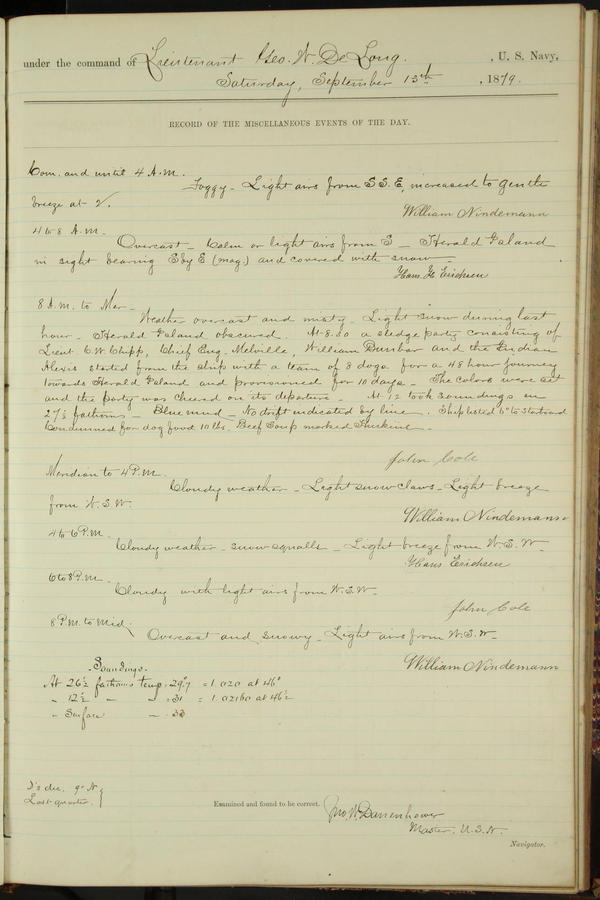 under the command of Lieutenant Geo. W. De Long. , U. S. Navy,
Saturday, September 13th , 1879.
RECORD OF THE MISCELLANEOUS EVENTS OF THE DAY.
Com. and until 4 A.M.
Foggy - Light airs from S S. E, increased to gentle
breeze at 2.
William Nindemann
4 to 8 A.M.
Overcast - Calm or light airs from S - Herald Island
in sight bearing E by E (mag.) and covered with snow -
Hans H Erichsen
8 A.M. to Mer -
Weather overcast and misty - Light snow during last
hour - Herald Island obscured. At 8.30 a sledge party consisting of
Lieut C.W. Chipp, Chief Eng. Melville, William Dunbar and the Indian
Alexis started from the ship with a team of 8 dogs for a 48 hour journey
towards Herald Island and provisioned for 10 days - The colors were set
and the party was cheered on its departure - At 12 took soundings in
27½ fathoms - Blue mud - No drift indicated by line. Ship listed to Starboard
Condemned for dog food 10 lbs. Beef Soup marked
John Cole
Meridian to 4 P.M.
Cloudy weather - Light snow - Light breeze
from W.S.W.
William Nindemann
4 to 6 P.M.
Cloudy weather - snow squalls - Light breeze from W.S.W -
Hans Erichsen
6 to 8 P.M.
Cloudy with light airs from W.S.W -
John Cole
8 P.M. to Mid.
Overcast and snowy - Light airs from W.S.W -
William Nindemann
Soundings.
At 26½ fathoms temp. 29°.7 = 1.020 at 46°
" 12½ " " 31 = at 46½
" Surface " 33
dec. 9° N
Last quarter.
Examined and found to be correct. Jno W. Danenhower
Master, U.S.N.
Navigator.